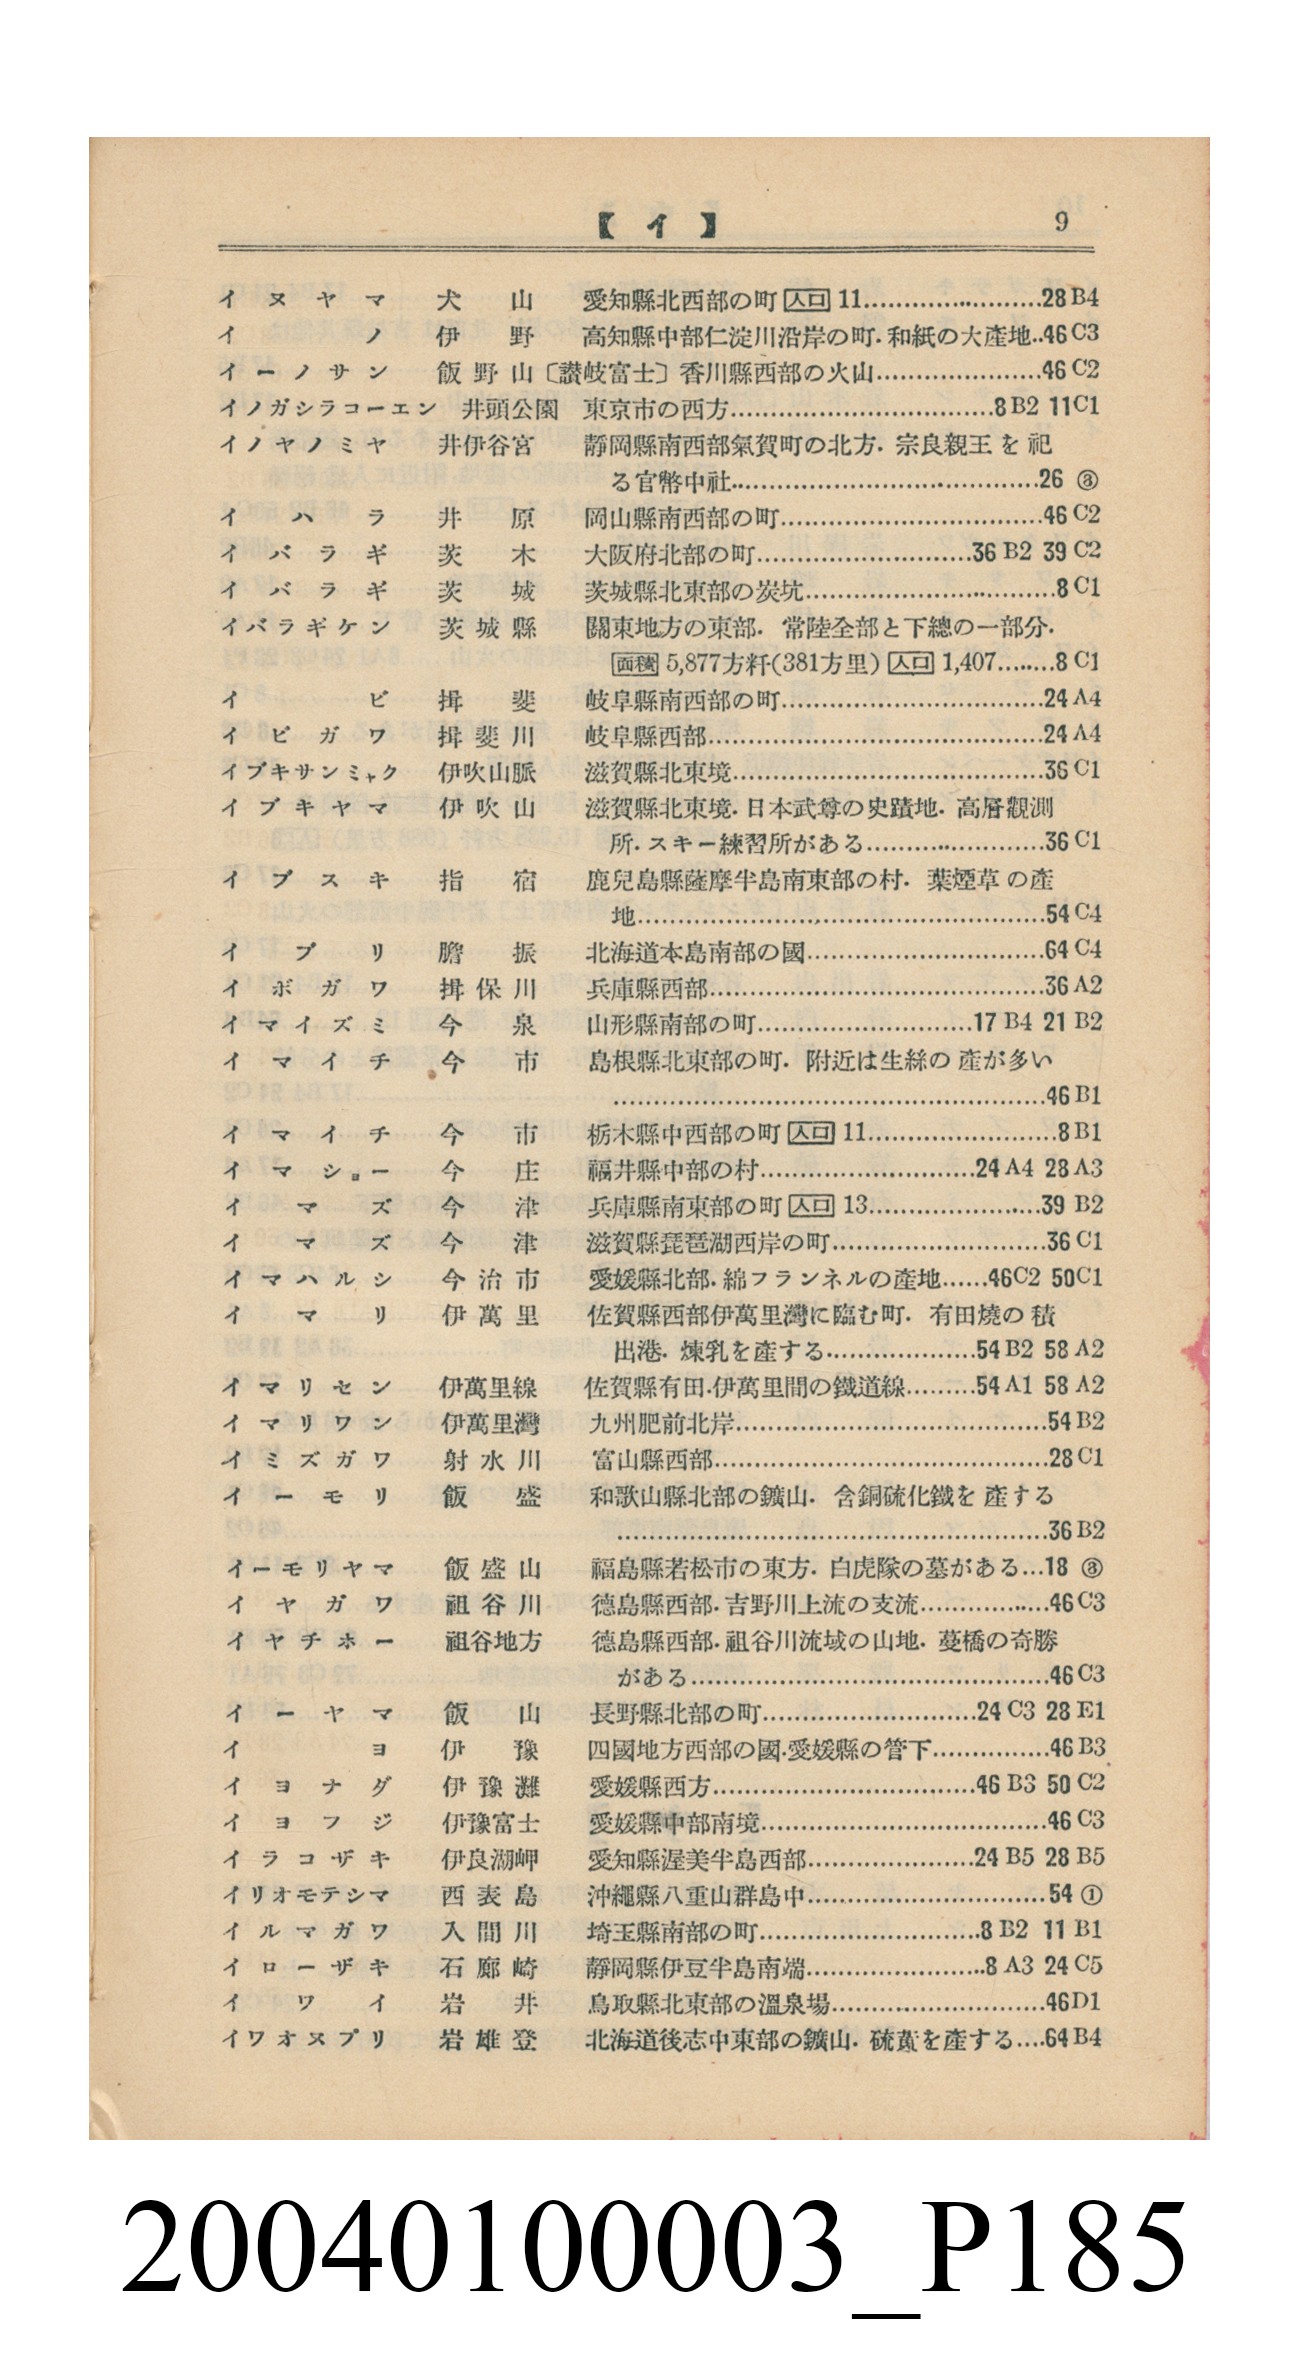 【イ】 9
イヌヤマ 犬山 愛知縣北西部の町 人口 11……………………28 B4
イノ 伊野 高知縣中部仁淀川沿岸の町. 和紙の大產地..46 C3
イーノサン 飯野山〔讃岐富士〕香川縣西部の火山……………………46 C2
イノガシラコーエン 井頭公園 東京市の西方……………………8 B2 11 C1
イノヤノミヤ 井伊谷宮 靜岡縣南西部氣賀町の北方. 宗良親王を祀
る官幣中社……………………26 ③
イハラ 井原 岡山縣南西部の町……………………46 C2
イバラギ 茨木 大阪府北部の町……………………36 B2 39 C2
イバラギ 茨城 茨城縣北東部の炭坑……………………8 C1
イバラギケン 茨城縣 關東地方の東部. 常陸全部と下總の一部分.
面積 5,877方粁(381方里) 人口 1,407………8 C1
イビ 揖斐 岐阜縣南西部の町……………………24 A4
イビガワ 揖斐川 岐阜縣西部……………………24 A4
イブキサンミャク 伊吹山脈 滋賀縣北東境……………………36 C1
イブキヤマ 伊吹山 滋賀縣北東境. 日本武尊の史蹟地. 高層觀測
所. スキー練習所がある……………………36 C1
イブスキ 指宿 鹿兒島縣薩摩半島南東部の村. 葉煙草の產
地……………………54 C4
イブリ 膽振 北海道本島南部の國……………………64 C4
イボガワ 揖保川 兵庫縣西部……………………36 A2
イマイズミ 今泉 山形縣南部の町……………………17 B4 21 B2
イマイチ 今市 島根縣北東部の町. 附近は生絲の產が多い
……………………46 B1
イマイチ 今市 栃木縣中西部の町 人口 11……………………8 B1
イマショー 今庄 福井縣中部の村……………………24 A4 28 A3
イマズ 今津 兵庫縣南東部の町 人口 13……………………39 B2
イマズ 今津 滋賀縣琵琶湖西岸の町……………………36 C1
イマハルシ 今治市 愛媛縣北部. 綿フランネルの產地……46 C2 50 C1
イマリ 伊萬里 佐賀縣西部伊萬里灣に臨む町. 有田燒の積
出港. 煉乳を產する…………………54 B2 58 A2
イマリセン 伊萬里線 佐賀縣有田.伊萬里間の鐵道線………54 A1 58 A2
イマリワン 伊萬里灣 九州肥前北岸……………………54 B2
イミズガワ 射水川 富山縣西部……………………28 C1
イーモリ 飯盛 和歌山縣北部の鑛山. 含銅硫化鐵を產する
……………………36 B2
イーモリヤマ 飯盛山 福島縣若松市の東方. 白虎隊の墓がある…18 ③
イヤガワ 祖谷川 德島縣西部. 吉野川上流の支流………………46 C3
イヤチホー 祖谷地方 德島縣西部. 祖谷川流域の山地. 蔓橋の奇勝
がある……………………46 C3
イーヤマ 飯山 長野縣北部の町……………………24 C3 28 E1
イヨ 伊豫 四國地方西部の國.愛媛縣の管下……………46 B3
イヨナダ 伊豫灘 愛媛縣西方……………………46 B3 50 C2
イヨフジ 伊豫富士 愛媛縣中部南境……………………46 C3
イラコザキ 伊良湖岬 愛知縣渥美半島西部……………………24 B5 28 B5
イリオモテシマ 西表島 沖繩縣八重山群島中……………………54 ①
イルマガワ 入間川 埼玉縣南部の町……………………8 B2 11 B1
イローザキ 石廊崎 靜岡縣伊豆半島南端……………………8 A3 24 C5
イワイ 岩井 鳥取縣北東部の溫泉場……………………46 D1
イワオヌプリ 岩雄登 北海道後志中東部の鑛山. 硫黃を產する….64 B4
20040100003_P185